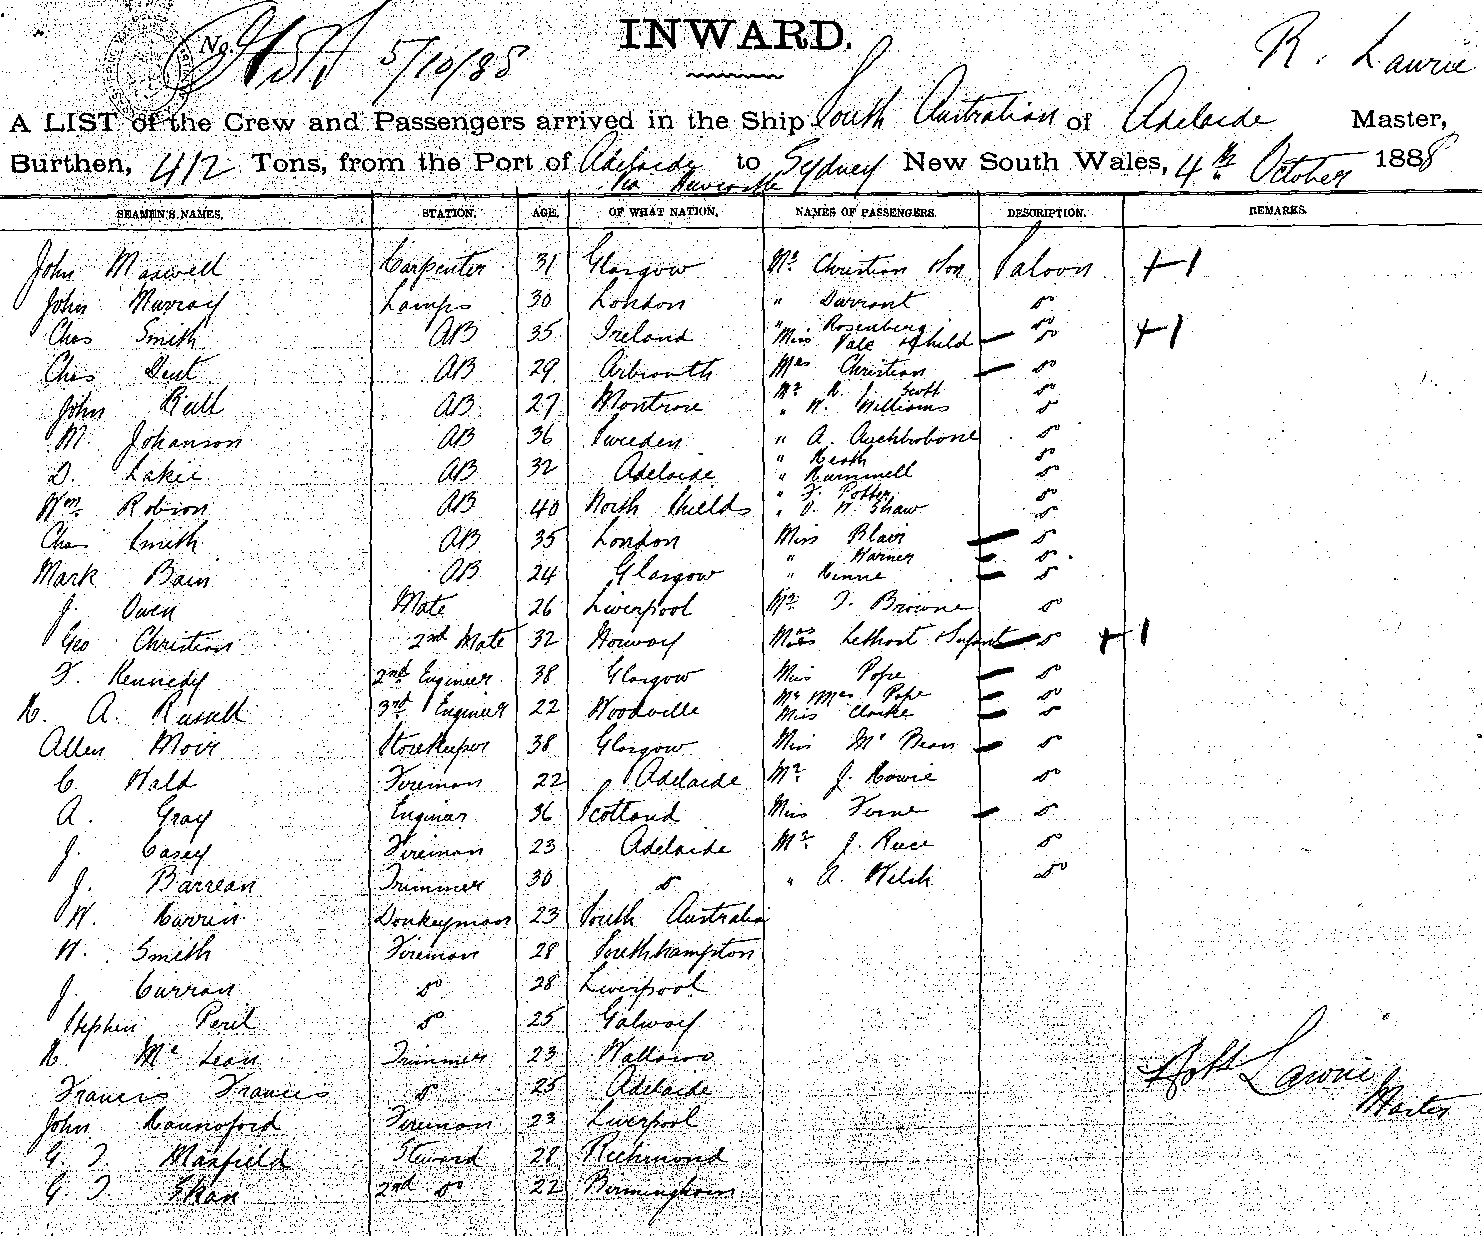 No. 5/10/88
INWARD.
R. Lawrie
A LIST of the Crew and Passengers arrived in the Ship South Australian of Adelaide Master,
Burthen, 412 Tons, from the Port of Adelaide to Sydney New South Wales, 4th October 1888
via Newcastle
SEAMEN'S NAMES. STATION. AGE. OF WHAT NATION. NAMES OF PASSENGERS. DESCRIPTION. REMARKS.
John Maxwell Carpenter 31 Glasgow Mr Christian & Son Saloon +1
John Murray Lamps 30 London " Durrant do
" Rosenberg do
Chas Smith AB 35 Ireland Miss Vale & Child do +1
Chas Dent AB 29 Arbroath Mrs Christian do
Mr R. J. Scott do
John Bull AB 27 Montrose " W. Williams do
M. Johanson AB 36 Sweden " A. do
" Heath do
D. Lakie AB 32 Adelaide " Rummell do
" F. Potter do
Wm Robson AB 40 North Shields " W. Shaw do
Chas Smith AB 35 London Miss Blair do
" Warner do
Mark Bain AB 24 Glasgow " Kenne do
J. Owen Mate 26 Liverpool Mr F. Browne do
Geo Christian 2nd Mate 32 Norway Mrs & Infant do +1
F. Kennedy 2nd Engineer 38 Glasgow Miss Pope do
Mr Mrs Pope do
R. A. Russell 3rd Engineer 22 Woodville Miss Clarke do
Allen Moir Storekeeper 38 Glasgow Miss Mc Bean do
C. Wald Fireman 22 Adelaide Mr J. Howie do
A. Gray Engineer 36 Scotland Miss Ferne do
J. Casey Fireman 23 Adelaide Mr J. Rice do
J. Barrean Trimmer 30 do " A. Welsh do
W. Donkeyman 23 South Australia
W. Smith Fireman 28 Southhampton
J. Curran do 28 Liverpool
Stephen Peril do 25 Galway
R. Mc Lean Trimmer 23 Wallaroo
Francis Francis do 25 Adelaide
Robt Lawrie
Master
John Hannaford Fireman 23 Liverpool
G. F. Maxfield Steward 28 Richmond
G. F. Skan 2nd do 22 Birmingham